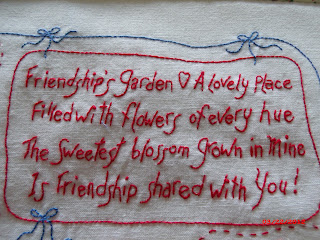 Friendship's Garden ♡ A Lovely Place
Filled with flowers of every hue
The Sweetest blossom grown in Mine
Is Friendship shared with You!